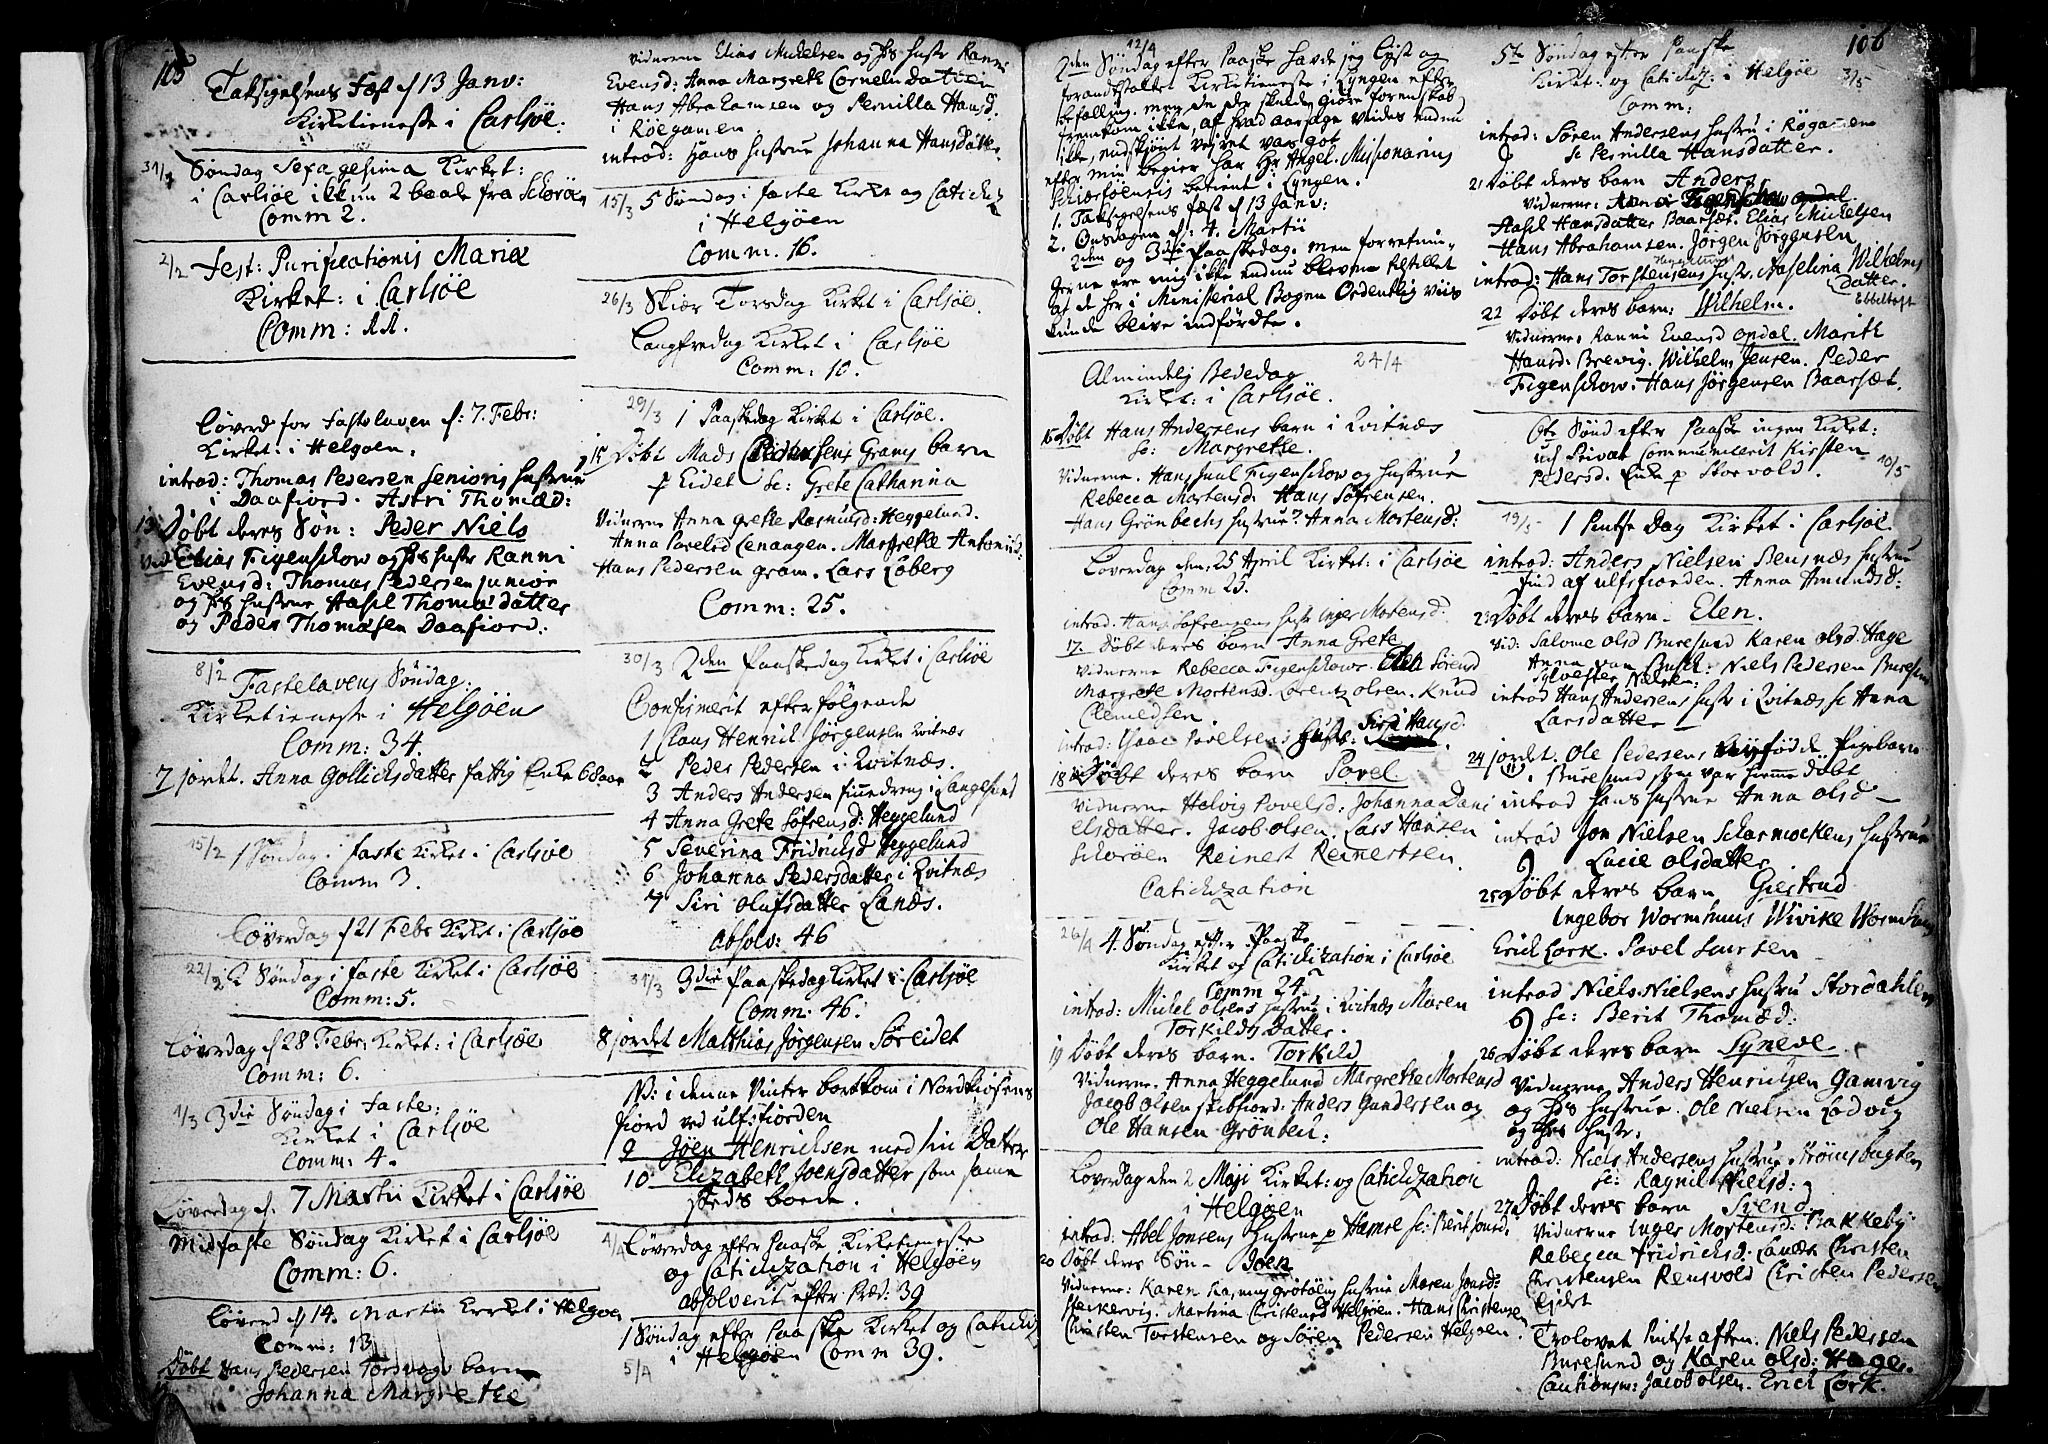 105
Taksigelsens Fæst d 13 Janv:
Kirketieneste i Carlsøe.
31/1 Søndag Sexagesima Kirket:
i Carlsøe ikkun 2 baade fra Schorøen
Comm 2.
2/2 Fest: Purificationis Mariæ
Kirket: i Carlsøe
Comm: 22.
Løverd for Fastelaven d: 7. Febr:
Kirket: i Helgøen.
introd: Thomas Pedersen Senioris hustrue
i Daafiord. Astri Thomæd:
13 Døbt deres Søn: Peder Niels
vid Elias Figenschow og hs hustr Ranni
Evensd: Thomas Pedersen junior
og hs hustrue Aasel Thomasdatter
og Peder Thomasen Daafiord.
8/2 Fastelavens Søndag.
Kirketieneste i Helgøen
Comm: 34.
7 jordet. Anna Gollichsdatter fattig Enke 68 aar
15/2 1 Søndag i faste Kirket i Carlsøe
Comm 3.
Løverdag d 21 Febr Kirket: i Carlsøe
22/2 2 Søndag i faste Kirket i Carlsøe
Comm: 5.
Løverdag d 28 Febr: Kirket: i Carlsøe
Comm: 6.
1/3 3die Søndag i Faste:
Kirket i Carlsøe
Comm: 4.
Løverdag d. 7 Martii Kirket i Carlsøe
Midfaste Søndag Kirket i Carlsøe
Comm: 6.
Løverd d 14. Martii Kirket i Helgøen
Comm: 13
Døbt Hans Pedersen Torsvogs barn
Johanna Margrethe
vidnerne Elias Mickelsen og hs hustr Ranni
Evensd: Anna Margreth Cornelii datter
Hans Abrahamsen og Pernilla Hansd.
i Røegamen
introd: Hans hustrue Johanna Hansdatter
15/3 5 Søndag i faste Kirket og Catichiz
i Helgøen
Comm: 16.
26/3 Skiær Torsdag Kirket i Carlsøe.
Langfredag Kirket i Carlsøe
Comm: 10.
29/3 1 Paaskedag Kirket i Carlsøe.
15 Døbt Mads Pedersens Grams barn
p Eidet sc: Grete Catharina
Vidnerne Anna grethe Rasmusd: Heggelund.
Anna Povelsd Cenangen. Margrethe Antonisd:
Hans Pedersen gram. Lars Loberg
Comm: 25.
30/3 2den Paaskedag Kirket i Carlsøe
Confirmerit efter følgende
1 Claus Henrich Jørgensen Qvitnæs
2 Peder Pedersen i Qvitnæs.
3 Anders Andersen finnedreng i Langesund
4 Anna Grete Søfrensd: Heggelund
5 Severina Fridrichsd Heggelund
6 Johanna Pedersdatter i Qvitnæs
7 Siri Olufsdatter Lanæs.
absolv: 46
31/3 3die Paaskedag Kirket i Carlsøe
Comm: 46.
8 jordet Matthias Jørgensen Søreidet
NB: i denne Vinter bortkom i Nordkiosens
fiord ved ulfsfiorden
9 Jøen Henrichsen med sin Datter
10 Elizabeth Joensdatter som samme
steds boede.
4/4 Løverdag efter Paaske Kirketieneste
og Catichization i Helgøen
absolverit efter Præd: 39
1 Søndag efter Paaske Kirket og Catichiz
5/4 i Helgøen Comm 39.
12/4
2den Søndag efter Paaske havde jeg lyst og
foranstaltet Kirketieneste i Lyngen efter
befalling. men de der skulde giøre forenskab
fremkom ikke, af hvad aarsage veides endnu
ikke, endskiønt vejret var got
efter min begier har Hr Angel. Missionarius
Schiersøensis betient i Lyngen.
1. Taksigelsens fæst d 13 Janv:
2. Onsdagen d: 4. Martii
2den og 3die Paaskedag. men forretnin-
gerne ere mig ikke endnu blevne tilstillet
at de her i Ministerial Bogen Ordentlig viis
kunde blive indførdte.
Almindelig Bededag 24/4
Kirket: i Carlsøe.
16 Døbt Hans Andersens barn i Qvitnæs
sc: Margrethe.
Vidnerne. Hans Juul Figenschow og hustrue
Rebecca Mortensd: Hans Søfrensen.
Hans Grønbechs hustrue. Anna Mortensd:
Løverdag den 25 April Kirket: i Carlsøe
Comm 23.
introd: Hans Søfrensens hustr Inger Mortensd.
17. Døbt deres barn Anna Grete
Vidnerne Rebecca Figenschows. Elen Sørensd
Margrete Mortensd. Lorentz olsen. Knud
Clemedsen
introd: Isaac Povelsens hustr: Siri Hansd.
18 Døbt deres barn Povel
Vidnerne Helvig Povelsd: Johanna Dani
elsdatter. Jacob olsen. Lars Hansen
Schorøen Reinert Reinertsen.
Catichization
26/4 4. Søndag efter Paaske
Kirket og Catichization i Carlsøe
Comm 24.
introd: Michel olsens hustrue i Qvitnæs Maren
Torkilds Datter.
19 Døbt deres barn. Torkild
Vidnerne. Anna Heggelund Margrethe Mortensd
Jacob olsen skibfiord: Anders Gundersen og
Ole Hansen Grønbech:
Løverdag den 2 Maji Kirket: og Catichization
i Helgøen
introd: Abel Jonsens hustrue p Hamre sc: Berit Jonsd:
20 Døbt deres Søn - Joen
Vidnerne: Karen grøtølig hustrue Maren Jonsd:
Martina Christensd Helgøen. Hans Christensen
Christen Torstensen og Søren Pedersen Helgøen.
106
5te Søndag efter Paaske
Kirket: og Catichiz: i Helgøe 3/5
Comm:
introd: Søren Andersens hustru i Røgamen
sc Pernilla Hansdatter.
21 Døbt deres barn Anders
Vidnerne:
Aasel Hansdatter Baarsæt. Elias Mickelsen
Hans Abrahamsen. Jørgen Jørgensen
introd: Hans Torstensens hustr. Aaselina Wilhelms
Datter.
22 Døbt deres barn: Wilhelm. Ebbeltoft
Vidnerne: Ranni Evensd opdal. Marith
Hansd: Brevig. Wilhelm Jensen. Peder
Figenschow. Hans Jørgensen Baarsæt.
6te Sønd efter Paaske ingen Kirket:
ud Privat Communicerit Kirsten
Pedersd. Enke p Storvold 10/5
19/5 1 Pintse Dag Kirket i Carlsøe.
introd: Anders Nielsen Bensnæs hustrue
find af ulfsfiorden. Anna Amundsd:
23 Døbt deres barn - Elen.
Vid: Salome olsd Buresund Karen olsd. Hage
Anna van Busch: Niels Pedersen Buresund
Sylvester Nielsen:
introd Hans Andersens hustr i Qvitnæs sc Anna
Larsdatter
24 jordet. Ole Pedersens nyefødde Pigebarn
i Buresund som var hiemme døbt
introd hans hustrue Anna olsd -
introd Jon Nielsen Scharmoekens hustrue
Lucie olsdatter
25 Døbt deres barn Giertrud
Ingebor Wormhuus Wivike Wormhuus
Erich Lorck. Povel Laursen
introd Niels Nielsens hustru Stordahlen
sc: Berit Thomæd:
26 Døbt deres barn Syneve
Vidnerne Anders Henrichsen Gamvig
og hs hustrue. Ole Nielsen Lodvig
og hs hustr:
introd: Niels Andersens hustrue Strømsbugten
sc: Ragnil Nielsd:
27 Døbt deres barn Svend
Vidnerne Inger Mortensd: Bakkebÿ
Rebecca Fridrichsd: Lanæs Christen
Christensen Rensvold Christen Pedersen
Eidet
Trolovet Pintse aften. Niels Pedersen
Buresund og Karen olsd: Hage.
Cautionsm: Jacob olsen. Erich Lorck.